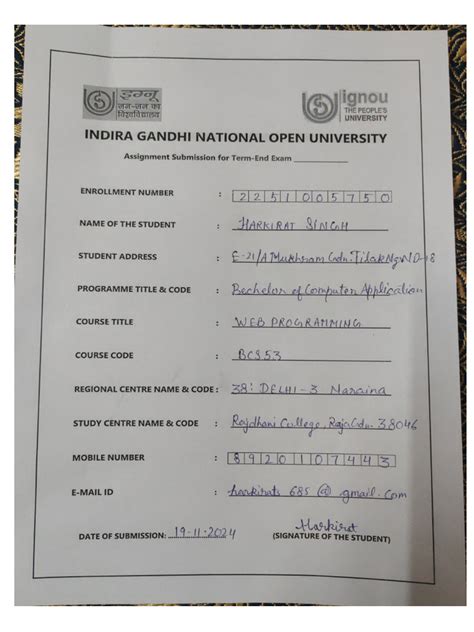 इग्नू
जन-जन का
विश्वविद्यालय
ignou
THE PEOPLE'S
UNIVERSITY
INDIRA GANDHI NATIONAL OPEN UNIVERSITY
Assignment Submission for Term-End Exam
ENROLLMENT NUMBER : 2251005750
NAME OF THE STUDENT : HARKIRAT SINGH
STUDENT ADDRESS : E-21/A Mukhram Gdn. Tilak Ng ND-18
PROGRAMME TITLE & CODE : Bechelor of Computer Application
COURSE TITLE : WEB PROGRAMMING
COURSE CODE : BCS53
REGIONAL CENTRE NAME & CODE : 38: DELHI-3 Naraina
STUDY CENTRE NAME & CODE : Rajdhani College, Raja Gdn. 38046
MOBILE NUMBER : 8920107443
E-MAIL ID : harkirats685@gmail.com
Harkirat
DATE OF SUBMISSION: 19-11-2024 (SIGNATURE OF THE STUDENT)